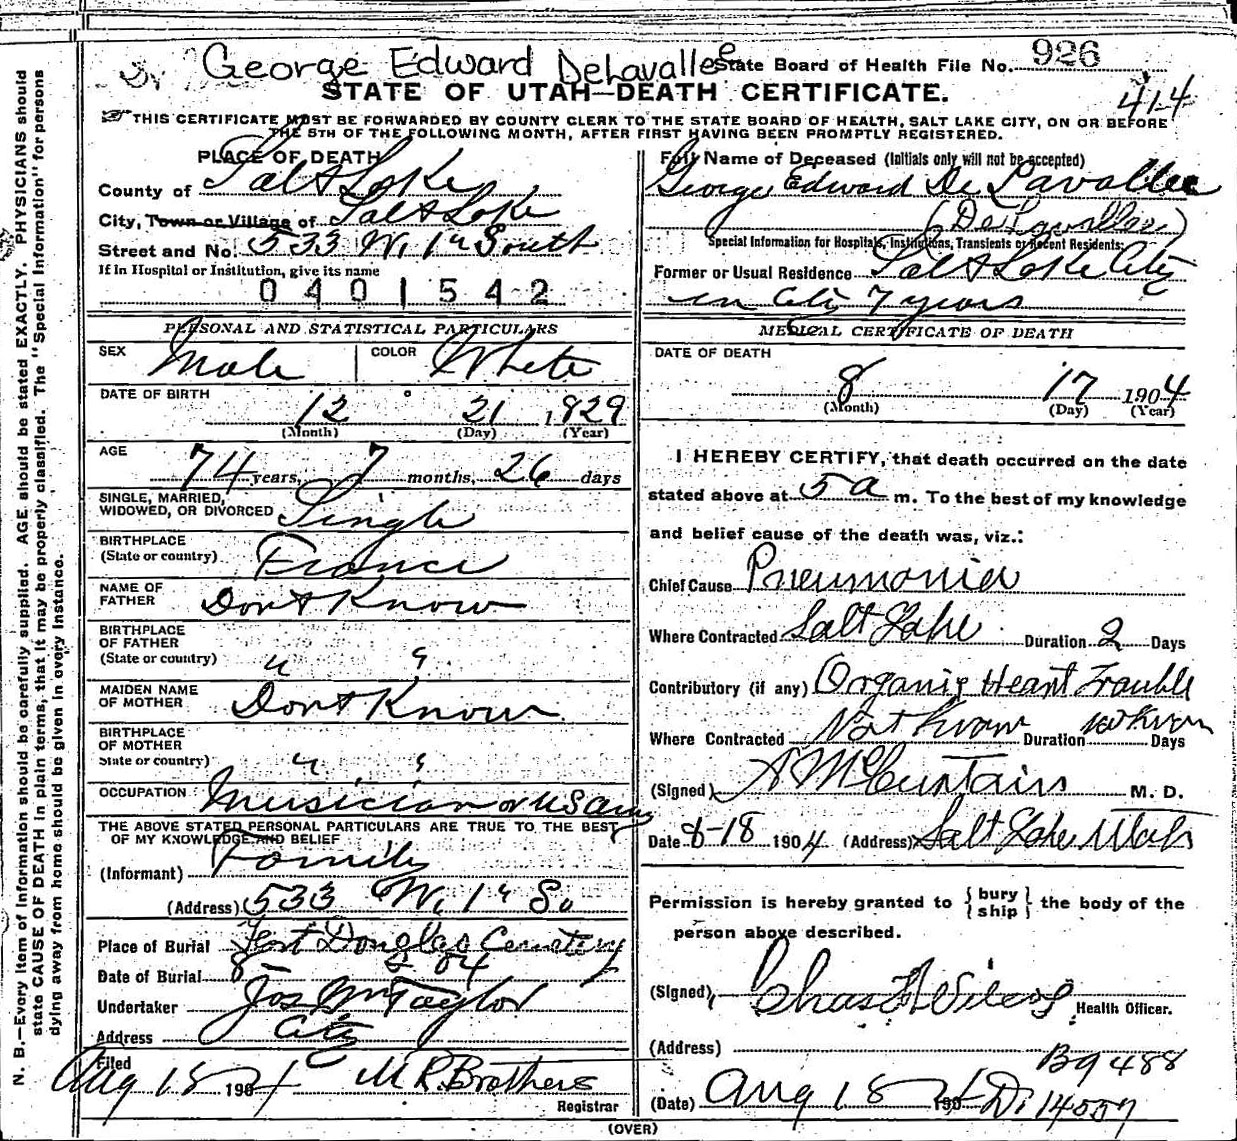 George Edward DeLavallee
State Board of Health File No. 926
STATE OF UTAH—DEATH CERTIFICATE.
414
THIS CERTIFICATE MUST BE FORWARDED BY COUNTY CLERK TO THE STATE BOARD OF HEALTH, SALT LAKE CITY, ON OR BEFORE
THE 5TH OF THE FOLLOWING MONTH, AFTER FIRST HAVING BEEN PROMPTLY REGISTERED.
N. B.—Every item of information should be carefully supplied. AGE should be stated EXACTLY. PHYSICIANS should
state CAUSE OF DEATH in plain terms, that it may be properly classified. The "Special Information" for persons
dying away from home should be given in every instance.
PLACE OF DEATH
County of Salt Lake
City, Town or Village of Salt Lake
Street and No. 533 W. 1st South
If in Hospital or Institution, give its name
0401542
PERSONAL AND STATISTICAL PARTICULARS
SEX Male COLOR White
DATE OF BIRTH
12 21 1829
(Month) (Day) (Year)
AGE
74 years, 7 months, 26 days
SINGLE, MARRIED,
WIDOWED, OR DIVORCED Single
BIRTHPLACE
(State or country) France
NAME OF
FATHER Dont Know
BIRTHPLACE
OF FATHER
(State or country) " "
MAIDEN NAME
OF MOTHER Dont Know
BIRTHPLACE
OF MOTHER
State or country) " "
OCCUPATION Musician of U S Army
THE ABOVE STATED PERSONAL PARTICULARS ARE TRUE TO THE BEST
OF MY KNOWLEDGE AND BELIEF
(Informant) Family
(Address) 533 W. 1st So
Place of Burial Fort Douglas Cemetery
Date of Burial 8 04
Undertaker Jos Wm Taylor
Address City
Filed
Aug 18 1904 M R. Brothers
Registrar
Full Name of Deceased (Initials only will not be accepted)
George Edward De Lavallee
(De Lavallee)
Special Information for Hospitals, Institutions, Transients or Recent Residents.
Former or Usual Residence Salt Lake City
in City 7 years
MEDICAL CERTIFICATE OF DEATH
DATE OF DEATH
8 17 1904
(Month) (Day) (Year)
I HEREBY CERTIFY, that death occurred on the date
stated above at 5 a m. To the best of my knowledge
and belief cause of the death was, viz.:
Chief Cause Pneumonia
Where Contracted Salt Lake Duration 2 Days
Contributory (if any) Organic Heart Trouble
Where Contracted Not Known Duration not Known Days
(Signed) M. D.
Date 8-18 1904 (Address) Salt Lake Utah
Permission is hereby granted to { bury ship } the body of the
person above described.
(Signed) Chas Wilcox Health Officer.
(Address)
B9488
(Date) Aug 18 1904 Di 14557
(OVER)